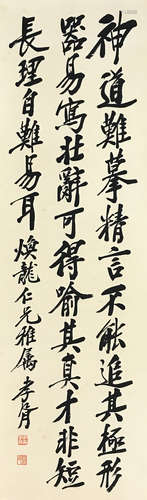 神道難摹精言不能追其極形
器易寫壯辭可得喻其真才非短
長理自難易耳 煥龍仁兄雅屬 李胥